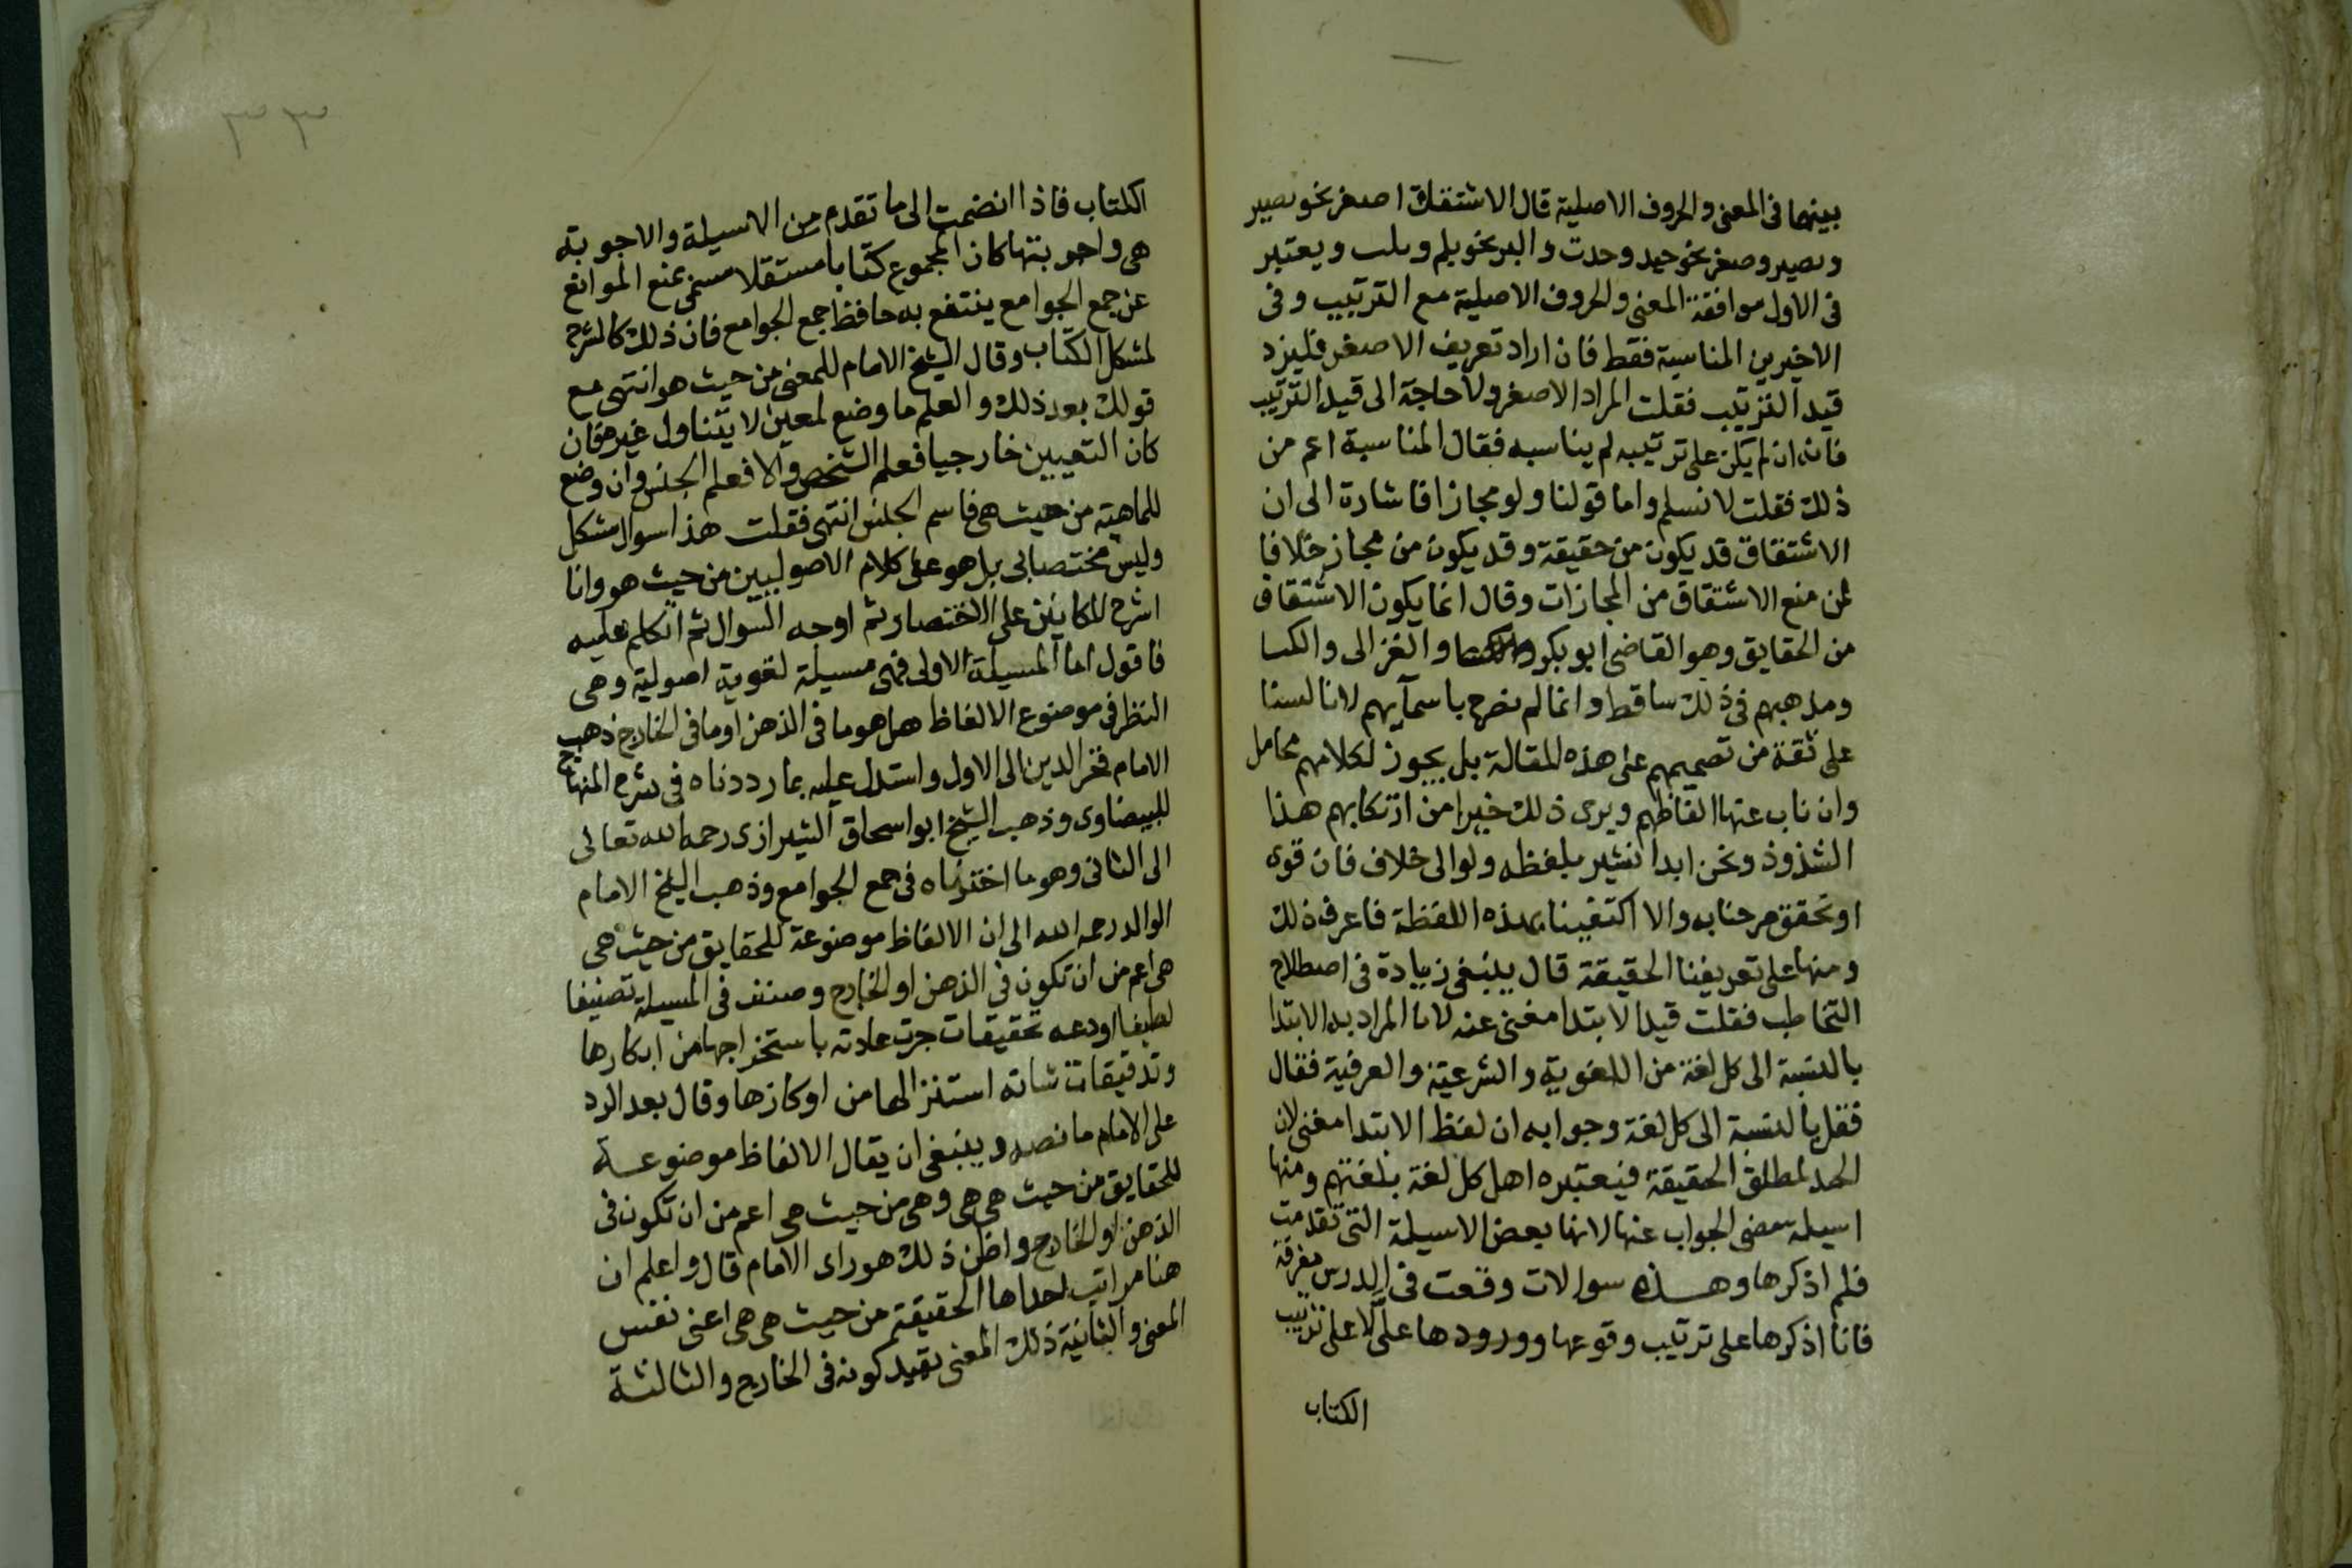 بينهما في المعنى والحروف الاصلية قال الاشتقاق اصغر نحو نصير
ونصير وصغير نحو حيد وحدت واكبر نحو يلم وتلب ويعتبر
في الاول موافقة المعنى والحروف الاصلية مع الترتيب وفي
الاخيرين المناسبة فقط فان اراد تعريف الاصغر فليزد
قيد الترتيب فقلت المراد الاصغر ولا حاجة الى قيد الترتيب
فانه ان لم يكن على ترتيبه لم يناسبه فقال المناسبة اعم من
ذلك فقلت لا نسلم واما قولنا ولو مجازا فاشارة الى ان
الاشتقاق قد يكون من حقيقة وقد يكون من مجاز خلافا
لمن منع الاشتقاق من المجازات وقال انما يكون الاشتقاق
من الحقايق وهو القاضي ابو بكر والغزالي والكيا
ومذهبهم في ذلك ساقط وانما لم نصرح باسمآيهم لانا لسنا
على ثقة من تصميمهم على هذه المقالة بل يجوز لكلامهم محامل
وان ناب عنها الفاظهم ويرى ذلك خيرا من ارتكابهم هذا
الشذوذ ونحن ابدا نشير بلفظه ولو الى خلاف فان قوى
او تحقق صرحنا به والا اكتفينا بهذه اللفظة فاعرف ذلك
ومنها على تعريفنا الحقيقة قال ينبغي زيادة في اصطلاح
التخاطب فقلت قيد الابتدا مغنى عنه لانا المراد به الابتدا
بالنسبة الى كل لغة من اللغوية والشرعية والعرفية فقال
فقل بالنسبة الى كل لغة وجوابه ان لفظ الابتدا مغنى لان
الحد لمطلق الحقيقة فيعتبره اهل كل لغة بلغتهم ومنها
اسيلة مضى الجواب عنها لانها بعض الاسيلة التي تقدمت
فلم اذكرها وهذه سوالات وقعت في الدرس مفرقة
فانا اذكرها على ترتيب وقوعها وورودها علىَّ لا على ترتيب
الكتاب
٣٣
الكتاب فاذا انضمت الى ما تقدم من الاسيلة والاجوبة
هى واجوبتها كان المجموع كتابا مستقلا مسمى بمنع الموانع
عن جمع الجوامع ينتفع به حافظ جمع الجوامع فان ذلك كالشرح
لمشكل الكتاب وقال الشيخ الامام للمعنى من حيث هو انتهى مع
قولك بعد ذلك والعلم ما وضع لمعين لا يتناول غيره فان
كان التعيين خارجيا فعلم الشخص والا فعلم الجنس وان وضع
للماهية من حيث هى فاسم الجنس انتهى فقلت هذا سوال مشكل
وليس مختصا بى بل هو على كلام الاصوليين من حيث هو وانا
اشرح المكانين على الاختصار ثم اوجه السوال ثم اتكلم عليه
فاقول اما المسيلة الاولى فهى مسيلة لغوية اصولية وهى
النظر في موضوع الالفاظ هل هو ما في الذهن او ما في الخارج ذهب
الامام فخر الدين الى الاول واستدل عليه بما رددناه في شرح المنهاج
للبيضاوى وذهب الشيخ ابو اسحاق الشيرازى رحمه الله تعالى
الى الثانى وهو ما اخترناه في جمع الجوامع وذهب الشيخ الامام
الوالد رحمه الله الى ان الالفاظ موضوعة للحقايق من حيث هى
هى اعم من ان تكون في الذهن او الخارج وصنف في المسيلة تصنيفا
لطيفا اودعه تحقيقات جرت عادته باستخراجها من ابكارها
وتدقيقات شانه استنزالها من اوكارها وقال بعد الرد
على الامام ما نصه وينبغي ان يقال الالفاظ موضوعة
للحقايق من حيث هى هى وهى من حيث هى اعم من ان تكون في
الذهن او الخارج واظن ذلك هو راى الامام قال واعلم ان
هنا مراتب احداها الحقيقة من حيث هى هى اعنى نفس
المعنى والثانية ذلك المعنى بقيد كونه في الخارج والثالثة